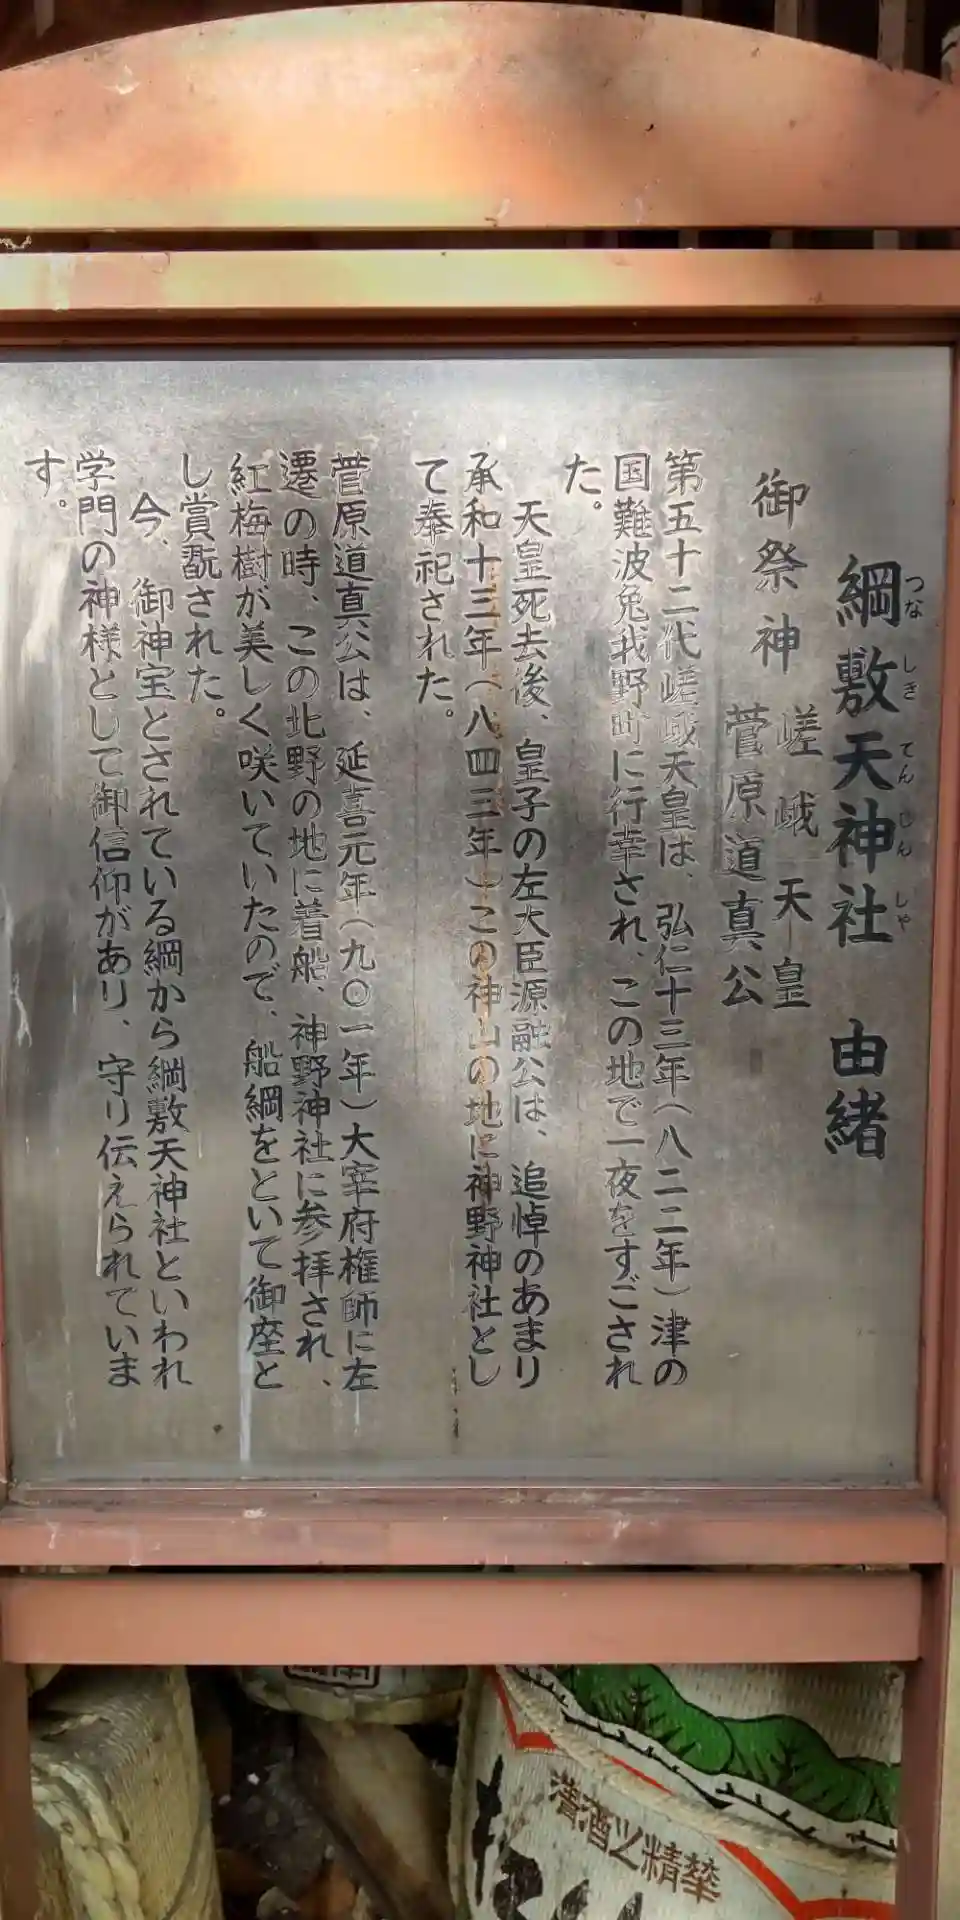 綱敷天神社　由緒
つなしきてんじんしゃ
御祭神　嵯峨天皇
菅原道真公
第五十二代嵯峨天皇は、弘仁十三年(八二二年)津の
国難波兎我野町に行幸され、この地で一夜をすごされ
た。
天皇死去後、皇子の左大臣源融公は、追悼のあまり
承和十三年(八四三年)この神山の地に神野神社とし
て奉祀された。
菅原道真公は、延喜元年(九〇一年)大宰府権師に左
遷の時、この北野の地に着船、神野神社に参拝され、
紅梅樹が美しく咲いていたので、船綱をといて御座と
し賞翫された。
今、御神宝とされている綱から綱敷天神社といわれ
学門の神様として御信仰があり、守り伝えられていま
す。
清酒之精華